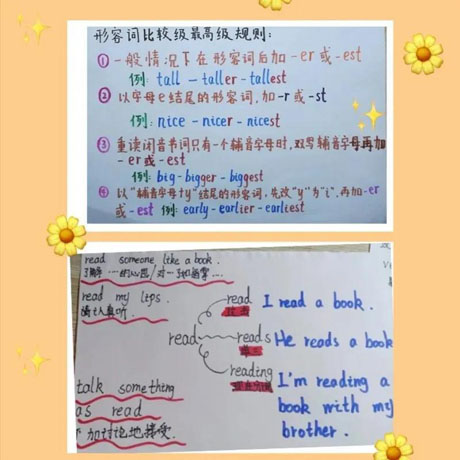 形容词比较级最高级规则:
① 一般情况下在形容词后加 -er 或 -est
例: tall - taller - tallest
② 以字母e结尾的形容词,加-r 或 -st
例: nice - nicer - nicest
③ 重读闭音节词只有一个辅音字母时,双写辅音字母再加
-er 或 -est
例: big - bigger - biggest
④ 以"辅音字母+y"结尾的形容词,先改"y"为"i",再加-er
或 -est 例: early - earlier - earliest
read someone like a book.
了解
read my lips.
read
reads
reading
read
I read a book.
He reads a book
I'm reading a
book with my
brother.
talk something
as read
不加讨论地接受.